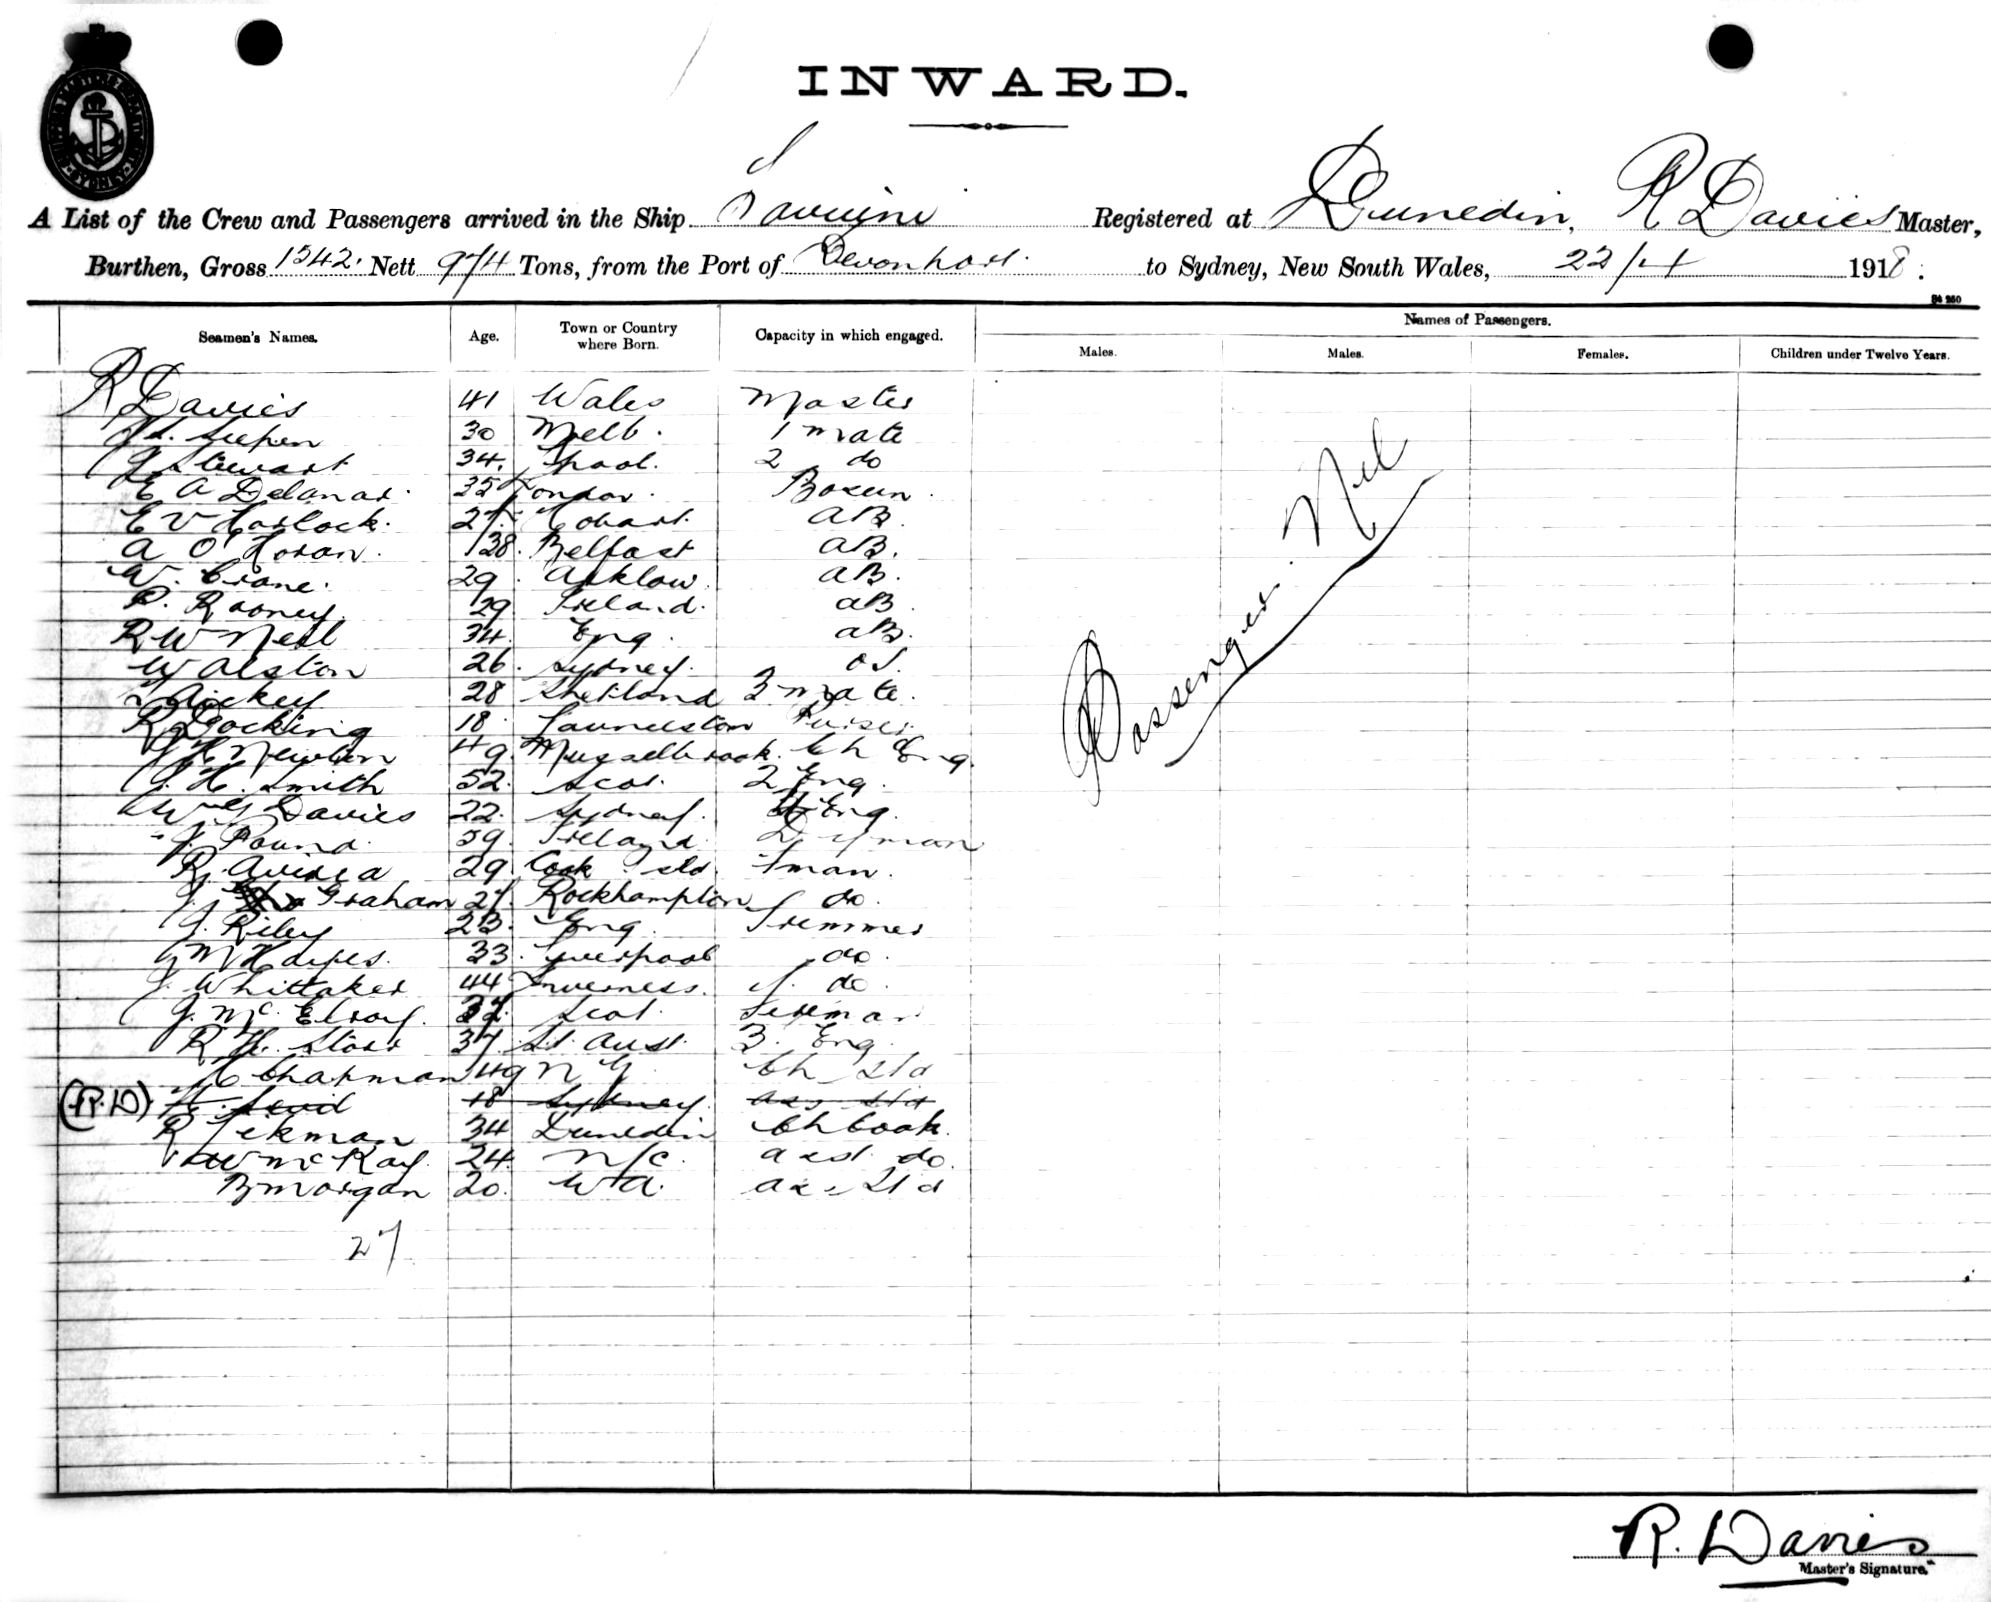 INWARD.
A List of the Crew and Passengers arrived in the Ship Registered at Dunedin, R Davies Master,
Burthen, Gross 1342. Nett 974 Tons, from the Port of Devonport. to Sydney, New South Wales, 22/4 1918.
Seamen's Names. Age. Town or Country where Born. Capacity in which engaged. Names of Passengers.
Males. Males. Females. Children under Twelve Years.
R Davies 41 Wales Master
30 Melb. 1 mate
J Stewart 34. L'pool. 2 do
E A 35 London. Bosun.
E V Horlock. Hobart. AB.
A O'Horan. 38. Belfast AB.
W. Crane. 29. Arklow. AB.
P. Rooney 29 Ireland. AB.
R W Neil 34. Eng. AB.
W Alston 26. Sydney. OS.
Hickey 28 Shetland 3 mate.
R Docking 18. Launceston Purser.
Newton 49. Musselbrook. Ch Eng.
J. H. Smith 52. Scot. 2 Eng.
Davies 22. Sydney. 4 Eng.
J. Pound. 59. Ireland.
R. 29. Cook Fman.
J. Graham 27. Rockhampton do.
J. Riley 23. Eng. Trimmer
33. Liverpool do.
J. Whittaker 44 Inverness. do.
J. McElroy. Scot. Fireman
R. H. Storr 37. St. Aust. 3. Eng.
Chapman 49 N Z Ch Std
(R.D) 18 Sydney. Ass Std
R Tekman 34 Dunedin Ch Cook.
W McKay. 24. N/C. asst. do.
B Morgan 20. WA. Ass Std
27
Passengers. Nil
R. Davies
Master's Signature.